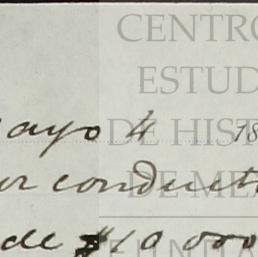 CENTRO
ESTUD
DE HIST
DE ME
FUNDA
ayo 4 18
or conduct
de $10 000